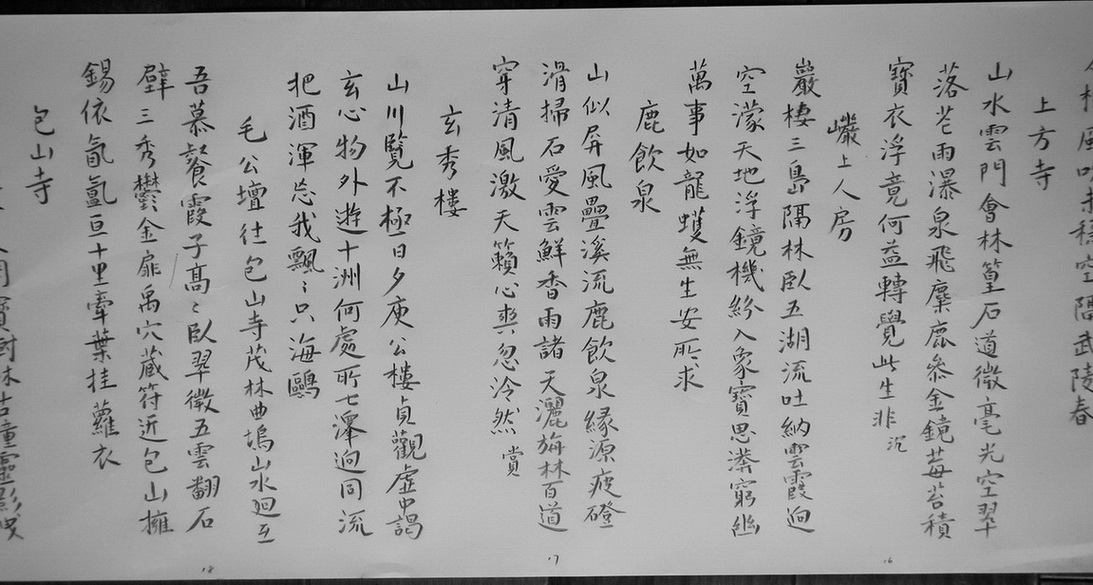 風吹未穩空隔武陵春
上方寺
山水雲門會林篁石道微毫光空翠
落花雨瀑泉飛麋鹿參金鏡莓苔積
寶衣浮竟何益轉覺此生非 沉
巖上人房
巖棲三島隔林臥五湖流吐納雲霞迥
空濛天地浮鏡機紛入象寶思滿窮幽
萬事如龍蠖無生安所求
鹿飲泉
山似屏風疊溪流鹿飲泉緣源疲磴
滑掃石愛雲鮮香雨諸天灑旃林百道
穿清風激天籟心與忽泠然 賞
玄秀樓
山川覽不極日夕庾公樓貞觀虛中謁
玄心物外遊十洲何處所七澤迥同流
把酒渾忘我飄〻只海鷗
毛公壇往包山寺茂林曲塢山水迴互
吾慕餐霞子高〻臥翠微五雲翻石
壁三秀鬱金扉禹穴蔵符近包山擁
錫依氤氳亘十里牽葉挂蘿衣
包山寺
寶樹林古壇靈影
16
17
18